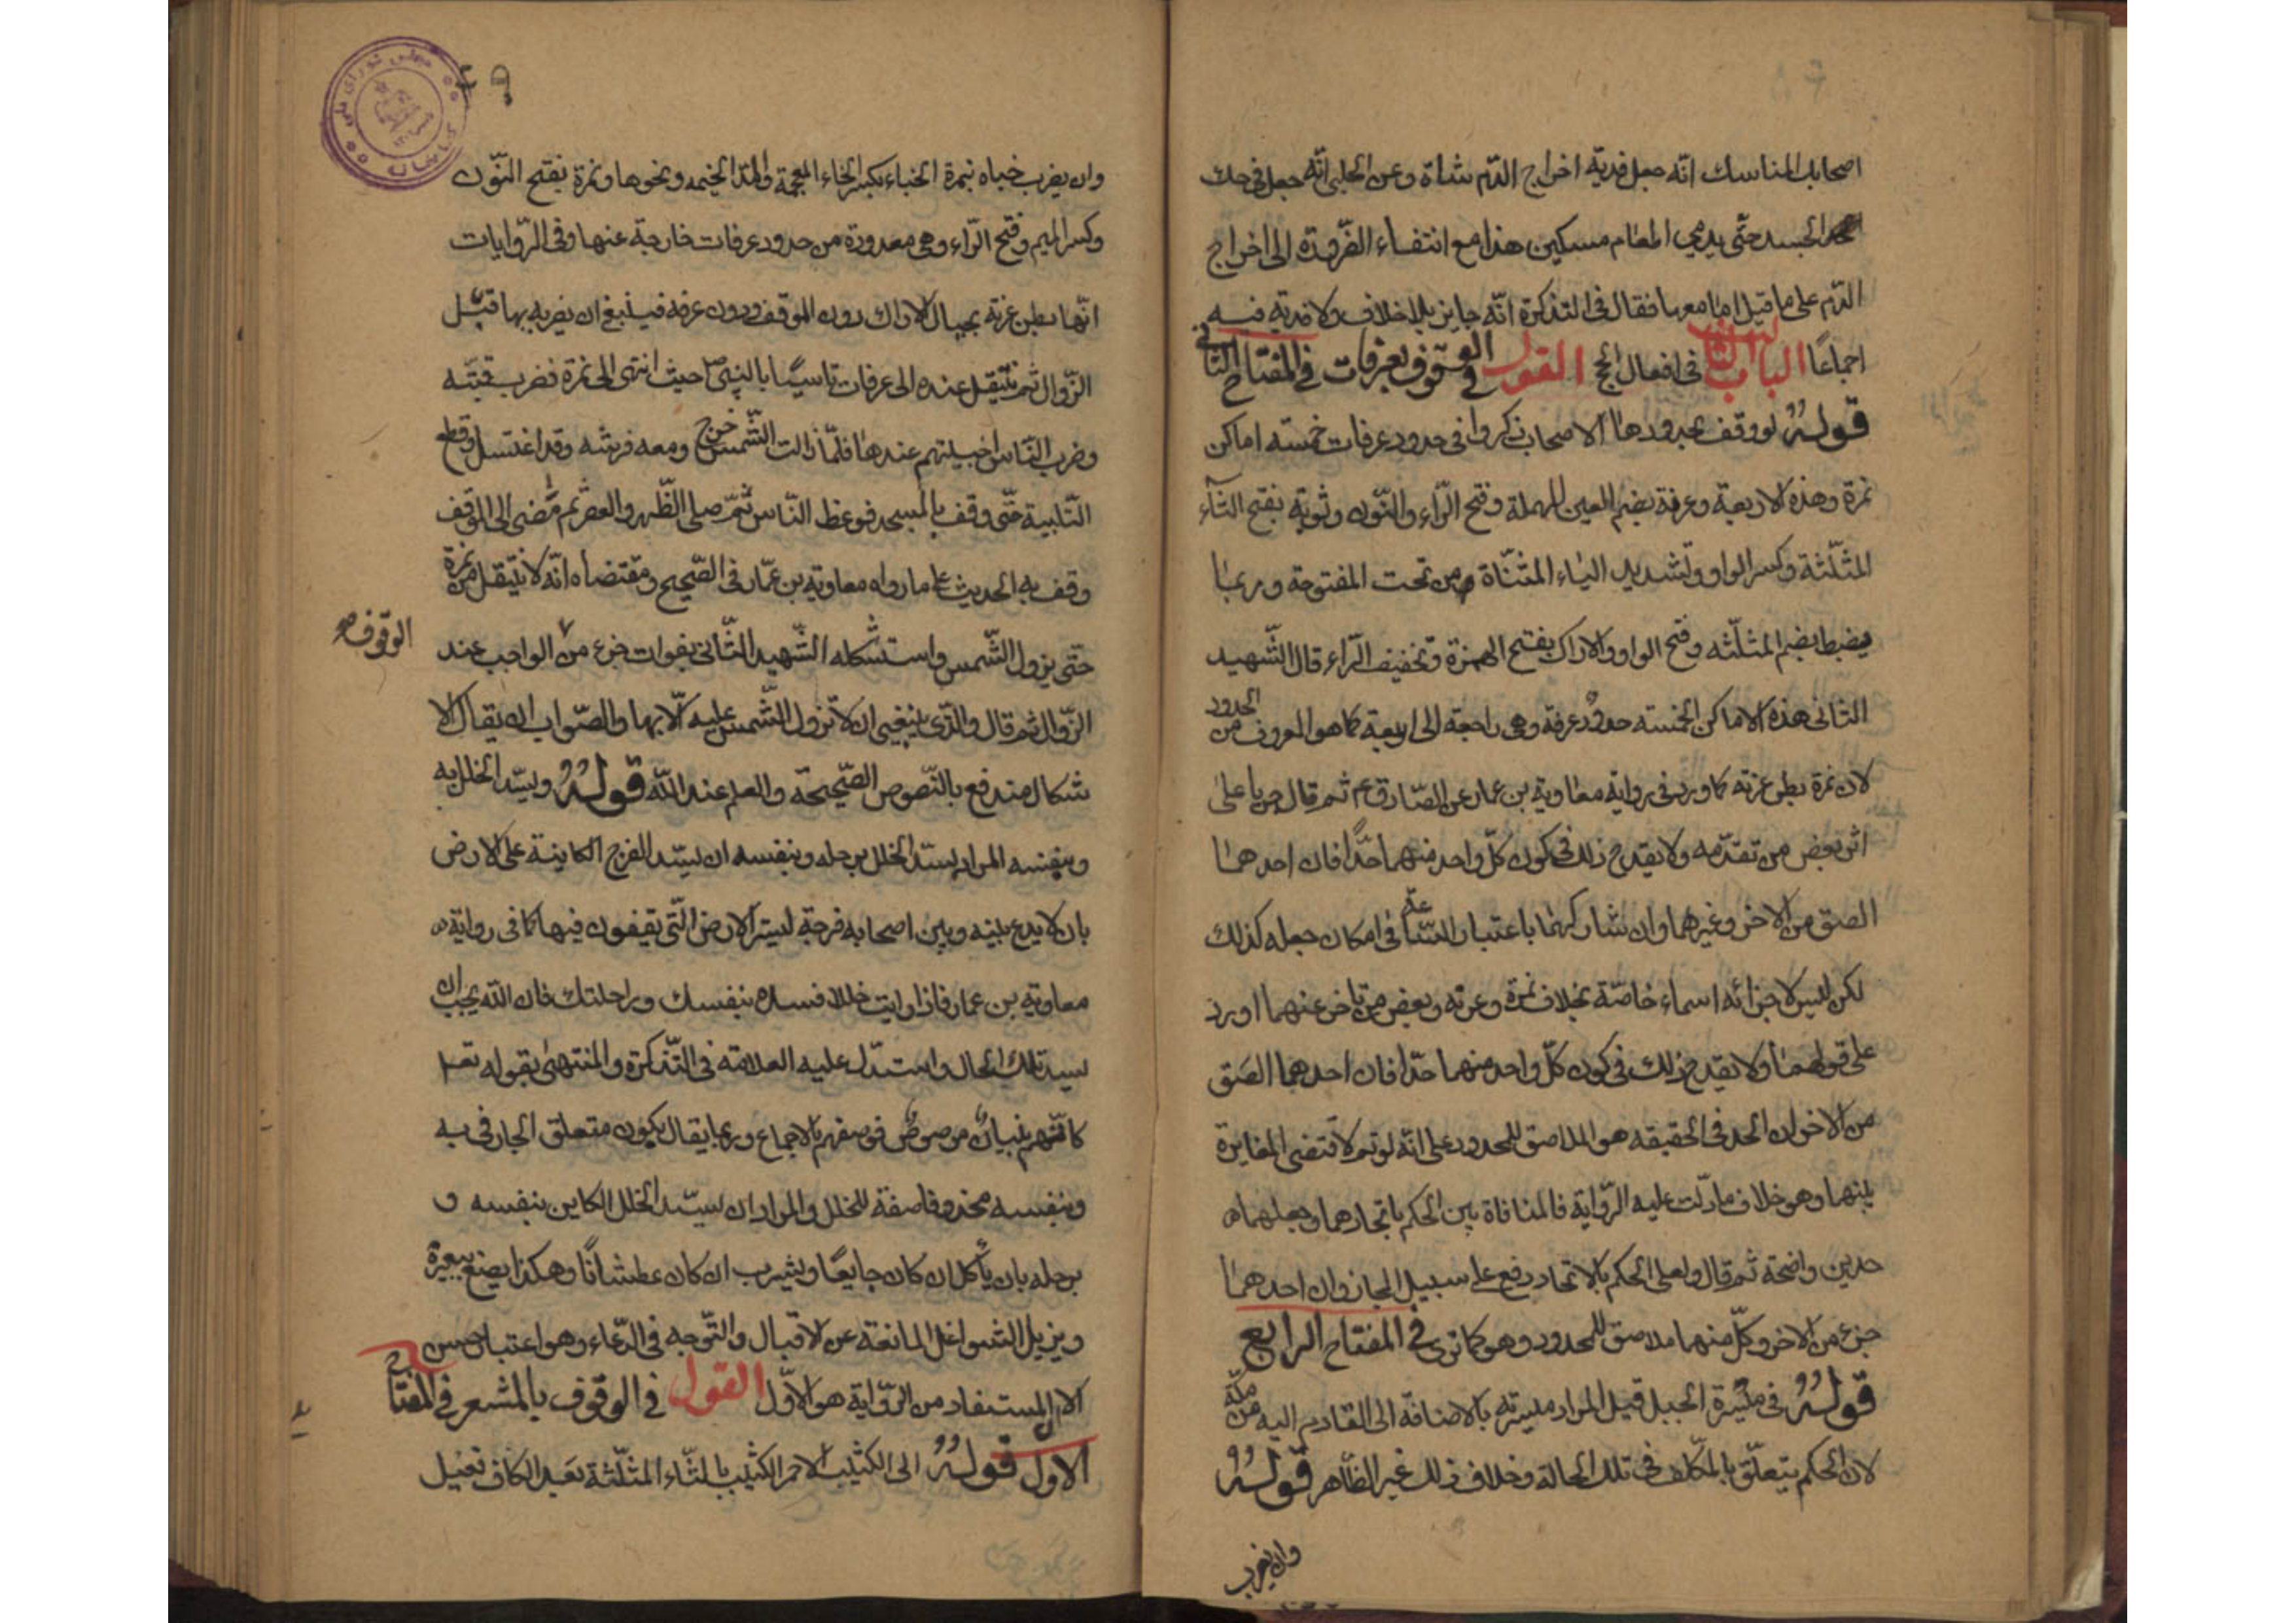 اصحابك المناسك انّه جعل فدية اخراج الدّم شاة وعن الحلبى انّه جعل فى حك
الجسد حتّى يدمى اطعام مسكين هذا مع انتفاء الضّرورة الى اخراج
الدّم على ما قيل اما معها فقال فى التذكرة انّه جايز بلا خلاف ولا فدية فيه
اجماعًا الباب الثانى فى افعال الحج القول فى الوقوف بعرفات فى المفتاح الثانى
قوله لو وقف بحدودها الاصحاب ذكروا فى حدود عرفات خمسة اماكن
نمرة وهذه الاربعة وعرنة بضم العين المهملة وفتح الرّاء والنّون وثوية بفتح الثاء
المثلّثة وكسر الواو وتشديد الياء المثنّاة من تحت المفتوحة وربما
يضبط بضم المثلّثه وفتح الواو والاراك بفتح الهمزة وتخفيف الرّاء قال الشّهيد
الثانى هذه الاماكن الخمسة حدود عرفة وهى راجعة الى اربعة كما هو المعروف من الحدود
لان نمرة بطن عرنة كما ورد فى رواية معاوية بن عمار عن الصّادق ع ثم قال جريا على
اثر بعض من تقدّمه ولا يقدح ذلك فى كون كلّ واحد منهما حدًّا فان احدهما
الصق من الاخر وغيرهما وان شاركهما باعتبار السّعة فى امكان جعله كذلك
لكن ليس لاجزائه اسماء خاصّة بخلاف نمرة وعرنه وبعض من تاخر عنهما اورد
على قولهما ولا يقدح ذلك فى كون كلّ واحد منهما حدّا فان احدهما الصق
من الاخر ان الحد فى الحقيقه هو الملاصق للمحدود على انّه لو تم لاقتضى المغايرة
بينهما وهو خلاف ما دلّت عليه الرّواية فالمنافاة بين الحكم باتحادهما وجعلهما
حدين واضحة ثم قال ولعل الحكم بالاتحاد وقع على سبيل المجاز وان احدهما
جزء من الاخر وكلّ منهما ملاصق للمحدود وهو كما ترى فى المفتاح الرابع
قوله فى ميسرة الجبل قيل المراد ميسرته بالاضافة الى القادم اليه من مكّة
لان الحكم يتعلّق بالمكلف فى تلك الحالة وخلاف ذلك غير الظّاهر قوله
وان يضرب
٤٩
وان يضرب خباه بنمرة الخباء بكسر الخاء المعجمة والمد الخيمه ونحوها ونمرة بفتح النّون
وكسر الميم وفتح الرّاء وهى معدودة من حدود عرفات خارجة عنها وفى الرّوايات
انّها بطن عرنة بحيال الاراك دون الموقف ودون عرفه فينبغى ان يضربه بها قبل
الزّوال ثم ينتقل عنده الى عرفات تاسيّا بالنبى ص حيث انتهى الى نمرة فضرب قبّته
وضرب النّاس اخبيتهم عندها فلمّا زالت الشّمس خرج ومعه فرسه وقد اغتسل وقطع
التّلبية حتّى وقف بالمسجد فوعظ النّاس ثم صلى الظّهر والعصر ثم مضى الى الموقف
وقف به الحديث على ما رواه معاوية بن عمّار فى الصّحيح ومقتضاه انّه لا ينتقل من نمرة
حتّى يزول الشّمس واستشكله الشّهيد الثّانى بفوات جزء من الواجب عند
الوقوف
الزّوال ثم قال والّذى ينبغى ان لا تزول الشّمس عليه الّا بها والصّواب ان يقال الا
شكال مندفع بالنّصوص الصّحيحة والعلم عند اللّه قوله ويسدّ الخلل به
وبنفسه المراد بسدّ الخلل برحله وبنفسه ان يسدّ الفرج الكاينة على الارض
بان لا يدع بينه وبين اصحابه فرجة ليستر الارض الّتى يقفون فيها كما فى رواية
معاوية بن عمار فاذا رايت خللا فسده بنفسك وراحلتك فان الله يحب ان
يسد تلك الخلال واستدلّ عليه العلامة فى التّذكرة والمنتهى بقوله تعـ
كانّهم بنيان مرصوص فوصفهم بالاجماع وربما يقال بكون متعلق الجار فى به
وبنفسه محذوفا صفة للخلل والمراد ان يسدّ الخلل الكاين بنفسه و
برحله بان يأكل ان كان جايعًا ويشرب ان كان عطشانًا وهكذا يصنع ببعيره
ويزيل الشواغل المانعة عن الاقبال والتّوجه فى الدّعاء وهو اعتبار حسن
الا ان المستفاد من الرّواية هو الاوّل القول فى الوقوف بالمشعر فى المفتاح
الاول قوله الى الكثيب الاحمر الكثيب بالثّاء المثلّثة بعد الكاف فعيل